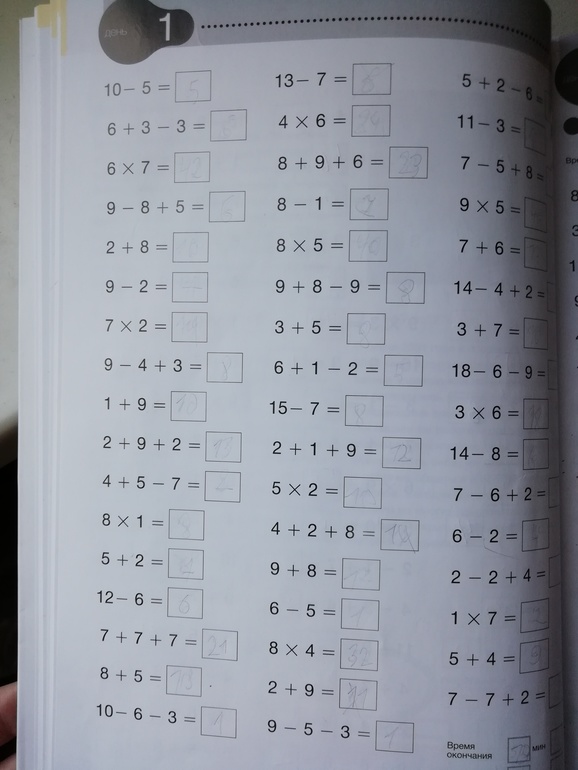 ДЕНЬ 1
10 - 5 = 5
6 + 3 - 3 =
6 × 7 = 42
9 - 8 + 5 =
2 + 8 =
9 - 2 =
7 × 2 =
9 - 4 + 3 =
1 + 9 = 10
2 + 9 + 2 = 13
4 + 5 - 7 =
8 × 1 = 8
5 + 2 =
12 - 6 = 6
7 + 7 + 7 = 21
8 + 5 = 13
10 - 6 - 3 = 1
13 - 7 =
4 × 6 =
8 + 9 + 6 = 23
8 - 1 = 7
8 × 5 = 40
9 + 8 - 9 = 8
3 + 5 = 8
6 + 1 - 2 = 5
15 - 7 = 8
2 + 1 + 9 = 12
5 × 2 = 10
4 + 2 + 8 = 14
9 + 8 =
6 - 5 = 1
8 × 4 = 32
2 + 9 = 11
9 - 5 - 3 = 1
5 + 2 - 6 =
11 - 3 =
7 - 5 + 8 =
9 × 5 =
7 + 6 =
14 - 4 + 2 =
3 + 7 =
18 - 6 - 9 =
3 × 6 =
14 - 8 =
7 - 6 + 2 =
6 - 2 =
2 - 2 + 4 =
1 × 7 =
5 + 4 = 9
7 - 7 + 2 =
Время
окончания мин